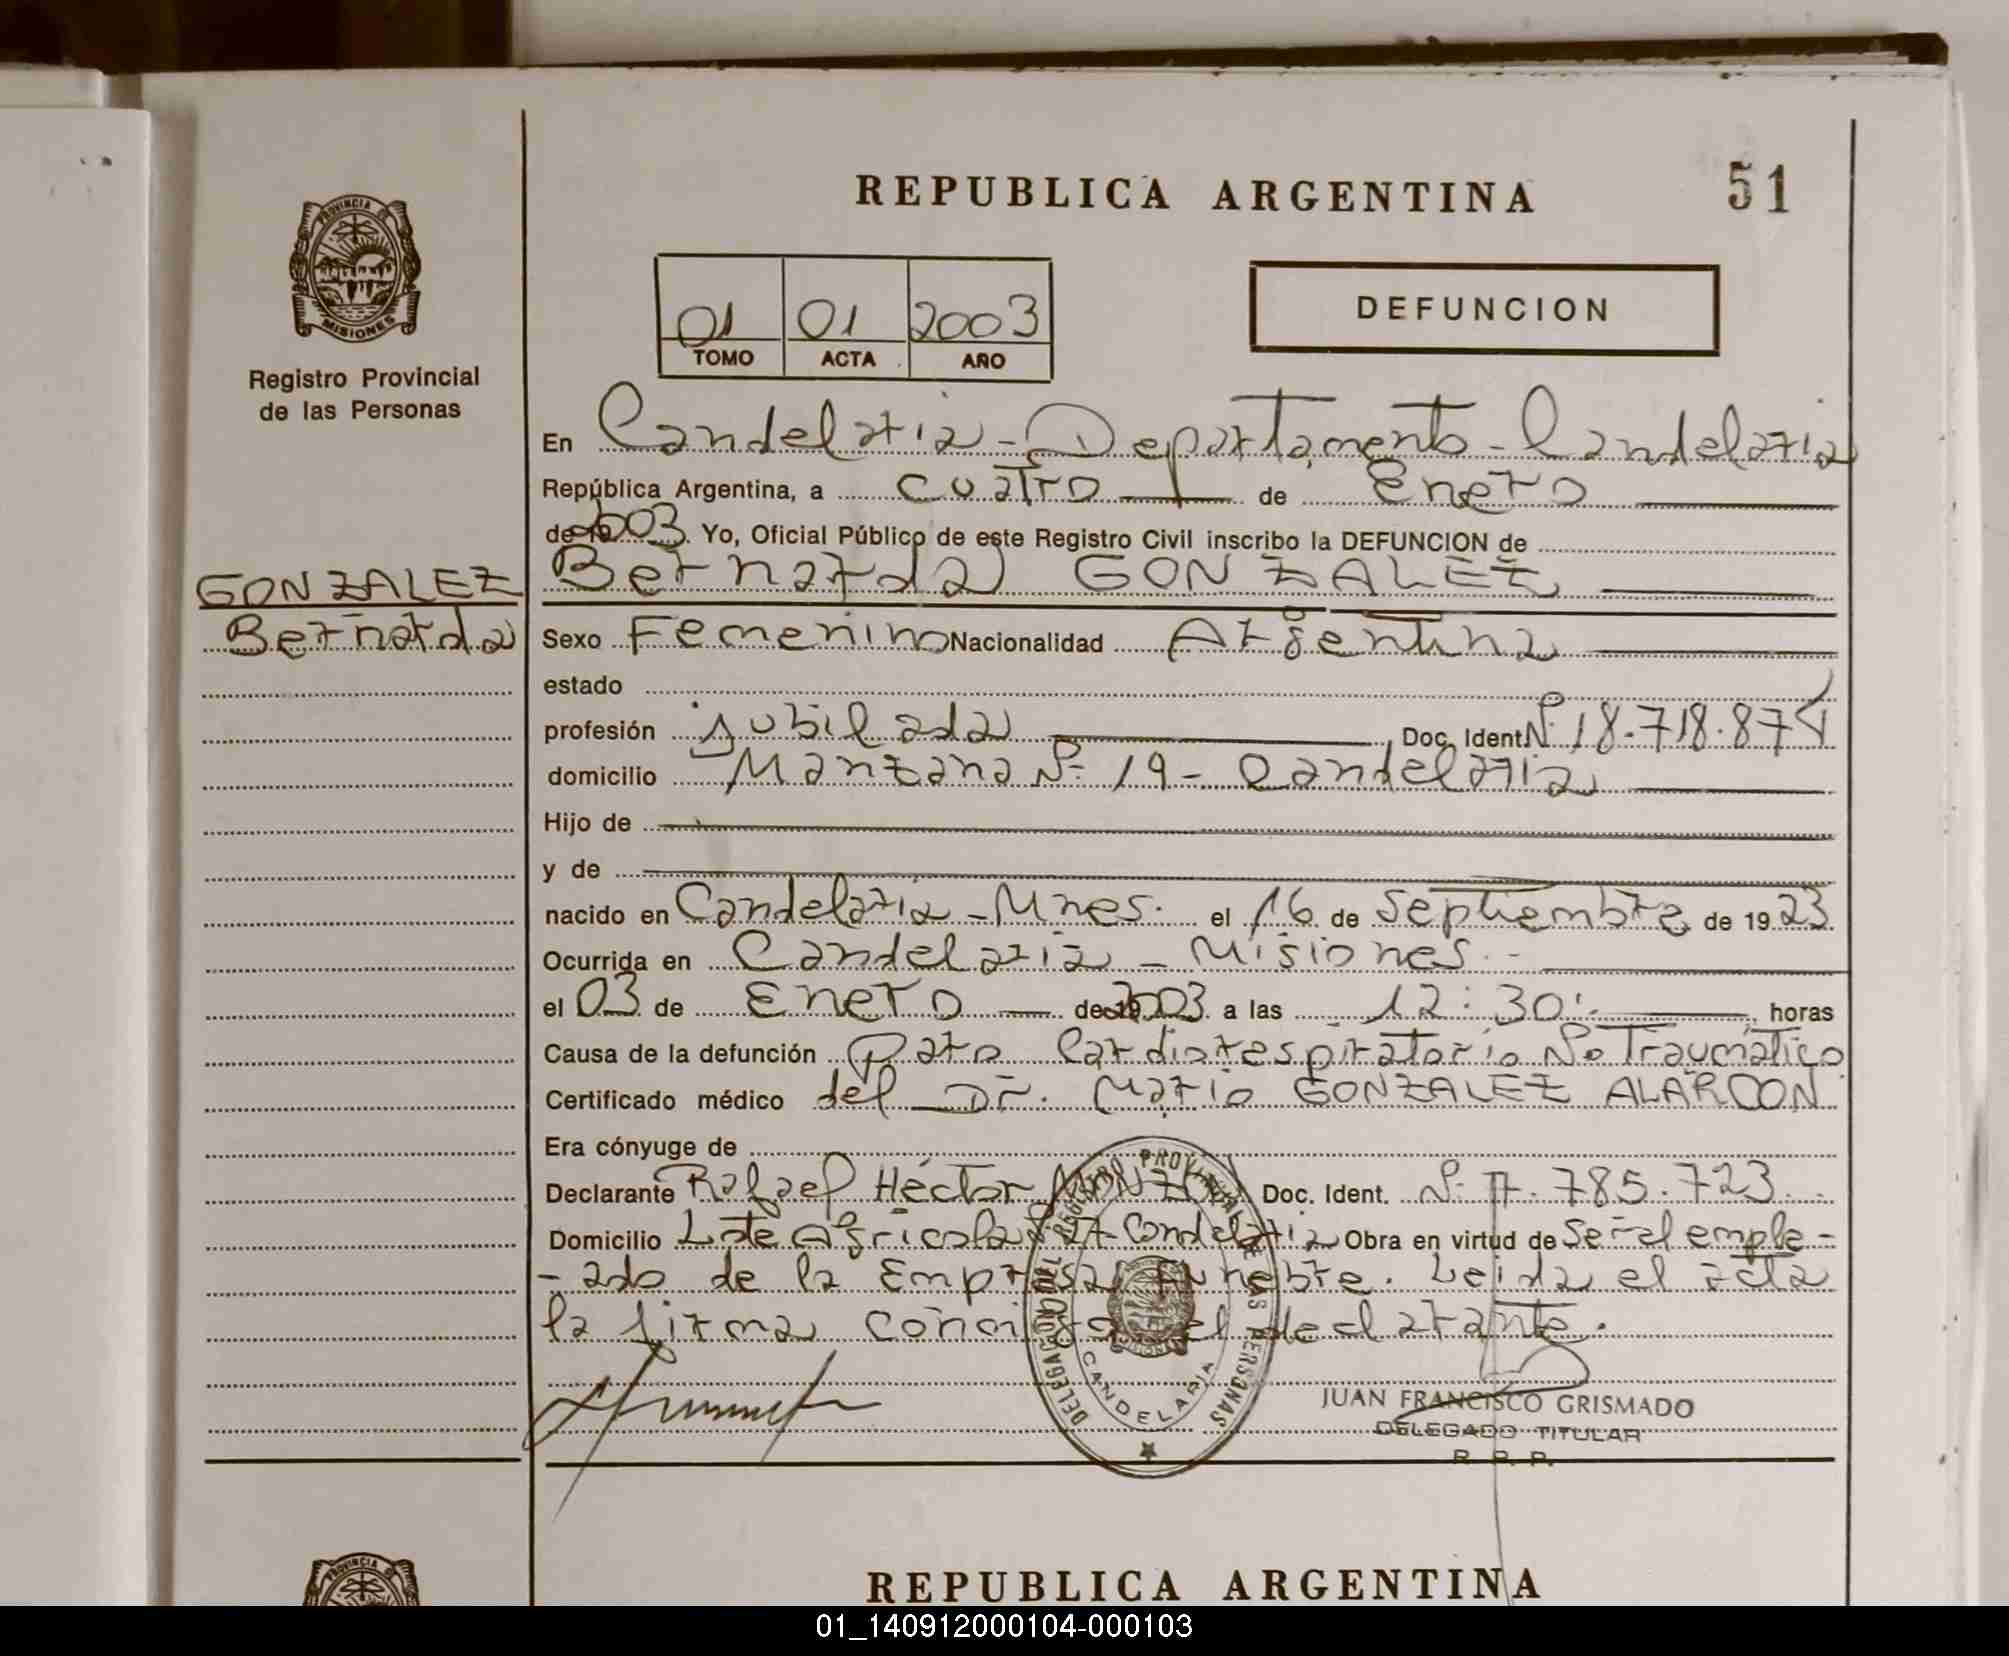 REPUBLICA ARGENTINA
51
PROVINCIA DE
MISIONES
Registro Provincial
de las Personas
01 01 2003
TOMO ACTA AÑO
DEFUNCION
En Candelaria - Departamento - Candelaria
República Argentina, a cuatro de Enero
de 2003. Yo, Oficial Público de este Registro Civil inscribo la DEFUNCION de
GONZALEZ
Bernarda
Bernarda GONZALEZ
Sexo Femenino Nacionalidad Argentina
estado
profesión Jubilada Doc. Ident. Nº 18.718.874
domicilio Manzana Nº 19 - Candelaria
Hijo de
y de
nacido en Candelaria - Mnes. el 16 de Septiembre de 1923
Ocurrida en Candelaria - Misiones.-
el 03 de Enero de 2003 a las 12:30 horas
Causa de la defunción Paro Cardiorespiratorio No Traumático
Certificado médico del Dr. Mario GONZALEZ ALARCON
Era cónyuge de
Declarante Rafael Héctor Doc. Ident. Nº 7.785.723
Domicilio Lote Agricola Candelaria Obra en virtud de Ser el emple-
-ado de la Empresa Funebre. Leida el acta
la firma el declarante.
DELEGACION DEL REGISTRO PROVINCIAL DE LAS PERSONAS
CANDELARIA
JUAN FRANCISCO GRISMADO
DELEGADO TITULAR
R. P. P.
REPUBLICA ARGENTINA
PROVINCIA
01_140912000104-000103